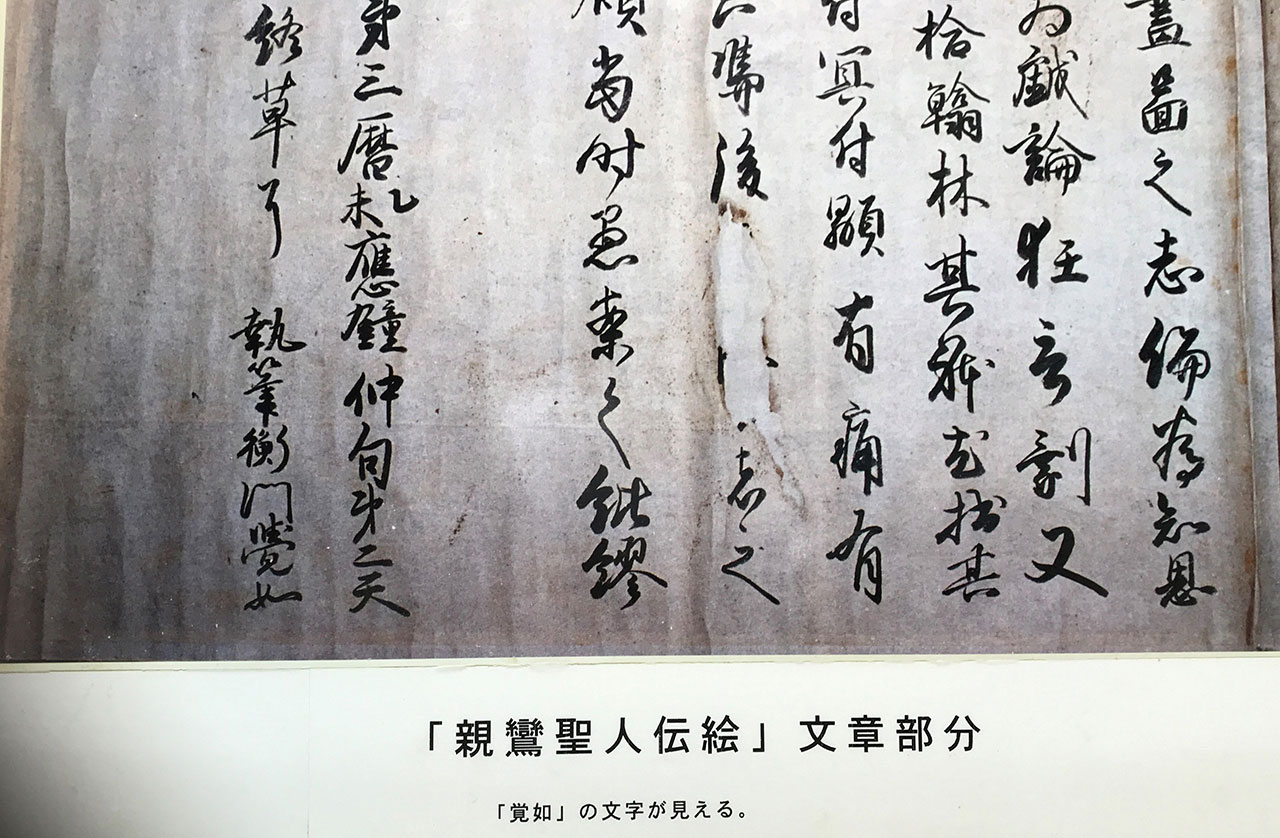 畫圖之志偏為知恩
為戲論狂言剰又
拾翰林其躰尤拙其
付冥付顯有痛有
憑後 者之
顧當時愚案之紕繆
第三暦乙未應鐘仲旬第二天
終草了 執筆衡門覺如
「親鸞聖人伝絵」文章部分
「覚如」の文字が見える。